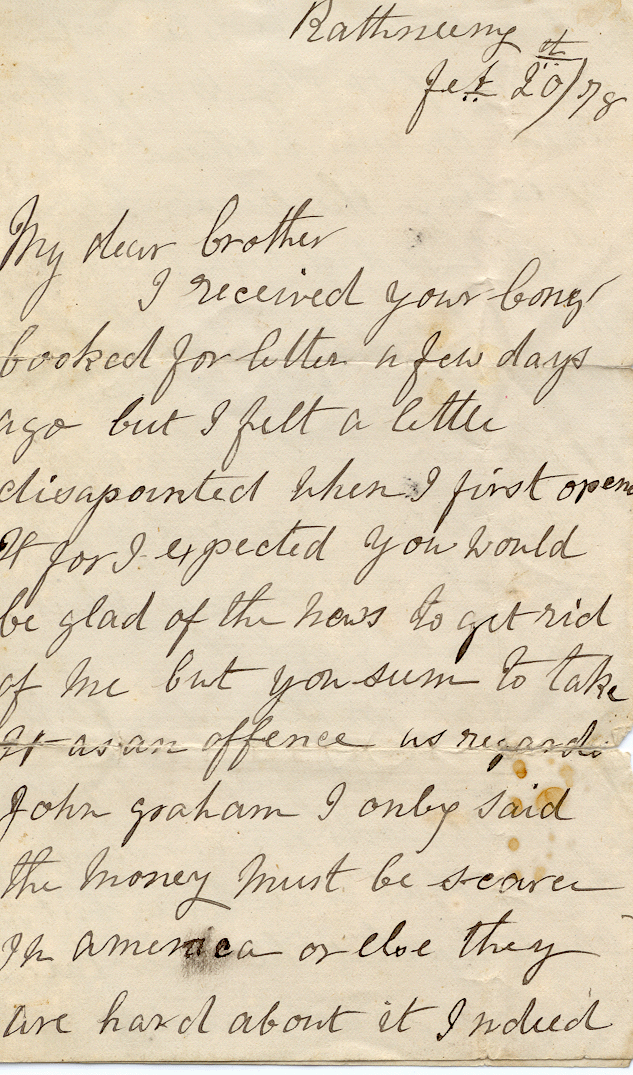 Rathneeny
Feb 20th/78
My dear brother
I received your long
looked for letter a few days
ago but I felt a little
disapointed when I first opene
It for I expected you would
be glad of the news to get rid
of me but you seem to take
It as an offence as regards
John graham I only said
the money must be scarce
In america or else they
are hard about it Indeed